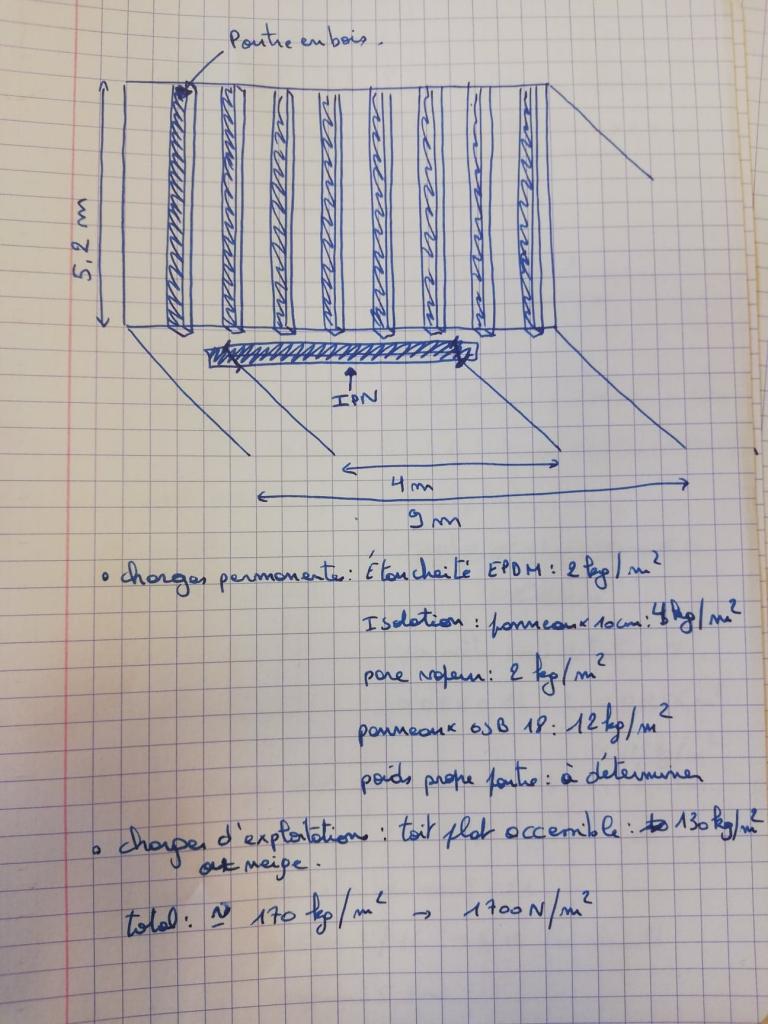 Poutre en bois.
5,2 m
IPN
4 m
9 m
• charges permanente: Étancheité EPDM: 2 kg/m²
Isolation: panneaux 10cm: 4kg/m²
pare vapeur: 2 kg/m²
panneaux OSB 18: 12 kg/m²
poids propre poutre: à déterminer
• charges d'exploitations: toit plat accessible: 130 kg/m²
neige.
total: ≈ 170 kg/m² → 1700 N/m²